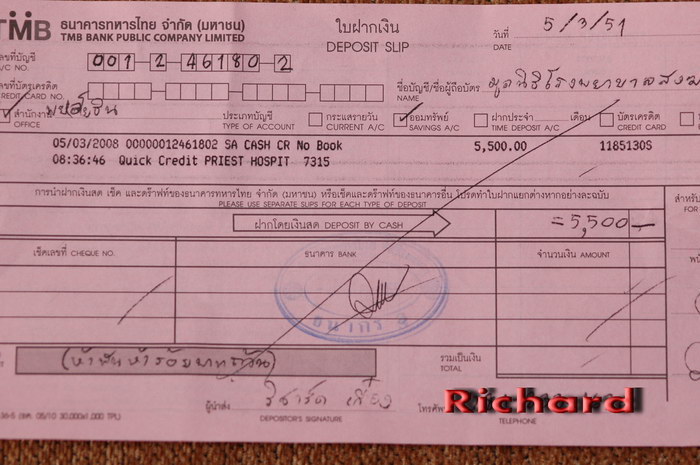 TMB ธนาคารทหารไทย จำกัด (มหาชน)
TMB BANK PUBLIC COMPANY LIMITED
ใบฝากเงิน
DEPOSIT SLIP
วันที่ 5/3/51
DATE
เลขที่บัญชี 001 2 46180 2
A/C NO.
เลขที่บัตรเครดิต
CREDIT CARD NO.
ชื่อบัญชี/ชื่อผู้ถือบัตร มูลนิธิโรงพยาบาลสงฆ
NAME
สำนักงาน
OFFICE
ประเภทบัญชี
TYPE OF ACCOUNT
กระแสรายวัน
CURRENT A/C
ออมทรัพย์
SAVINGS A/C
ฝากประจำ เดือน
TIME DEPOSIT A/C
บัตรเครดิต
CREDIT CARD
05/03/2008 00000012461802 SA CASH CR No Book 5,500.00 1185130S
08:36:46 Quick Credit PRIEST HOSPIT 7315
การนำฝากเงินสด เช็ค และดร๊าฟท์ของธนาคารทหารไทย จำกัด (มหาชน) หรือเช็คและดร๊าฟท์ของธนาคารอื่น โปรดทำใบฝากแยกต่างหากอย่างละฉบับ
PLEASE USE SEPARATE SLIPS FOR EACH TYPE OF DEPOSIT
สำหรับ
FOR
ฝากโดยเงินสด DEPOSIT BY CASH =5,500-
เช็คเลขที่ CHEQUE NO. ธนาคาร BANK จำนวนเงิน AMOUNT
(ห้าพันห้าร้อยบาทถ้วน)
รวมเป็นเงิน
TOTAL
ผู้นำส่ง
DEPOSITOR'S SIGNATURE
โทรศัพ
TELEPHONE
Richard